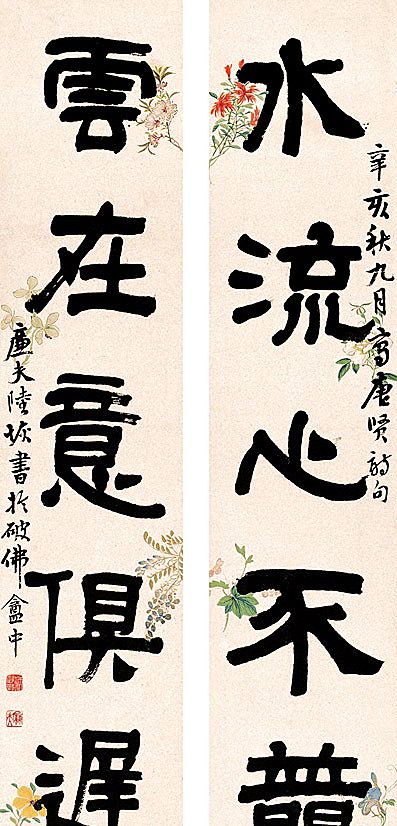 辛亥秋九月寫唐賢詩句
水流心不
雲在意俱遲
廉夫陸恢書於破佛盦中